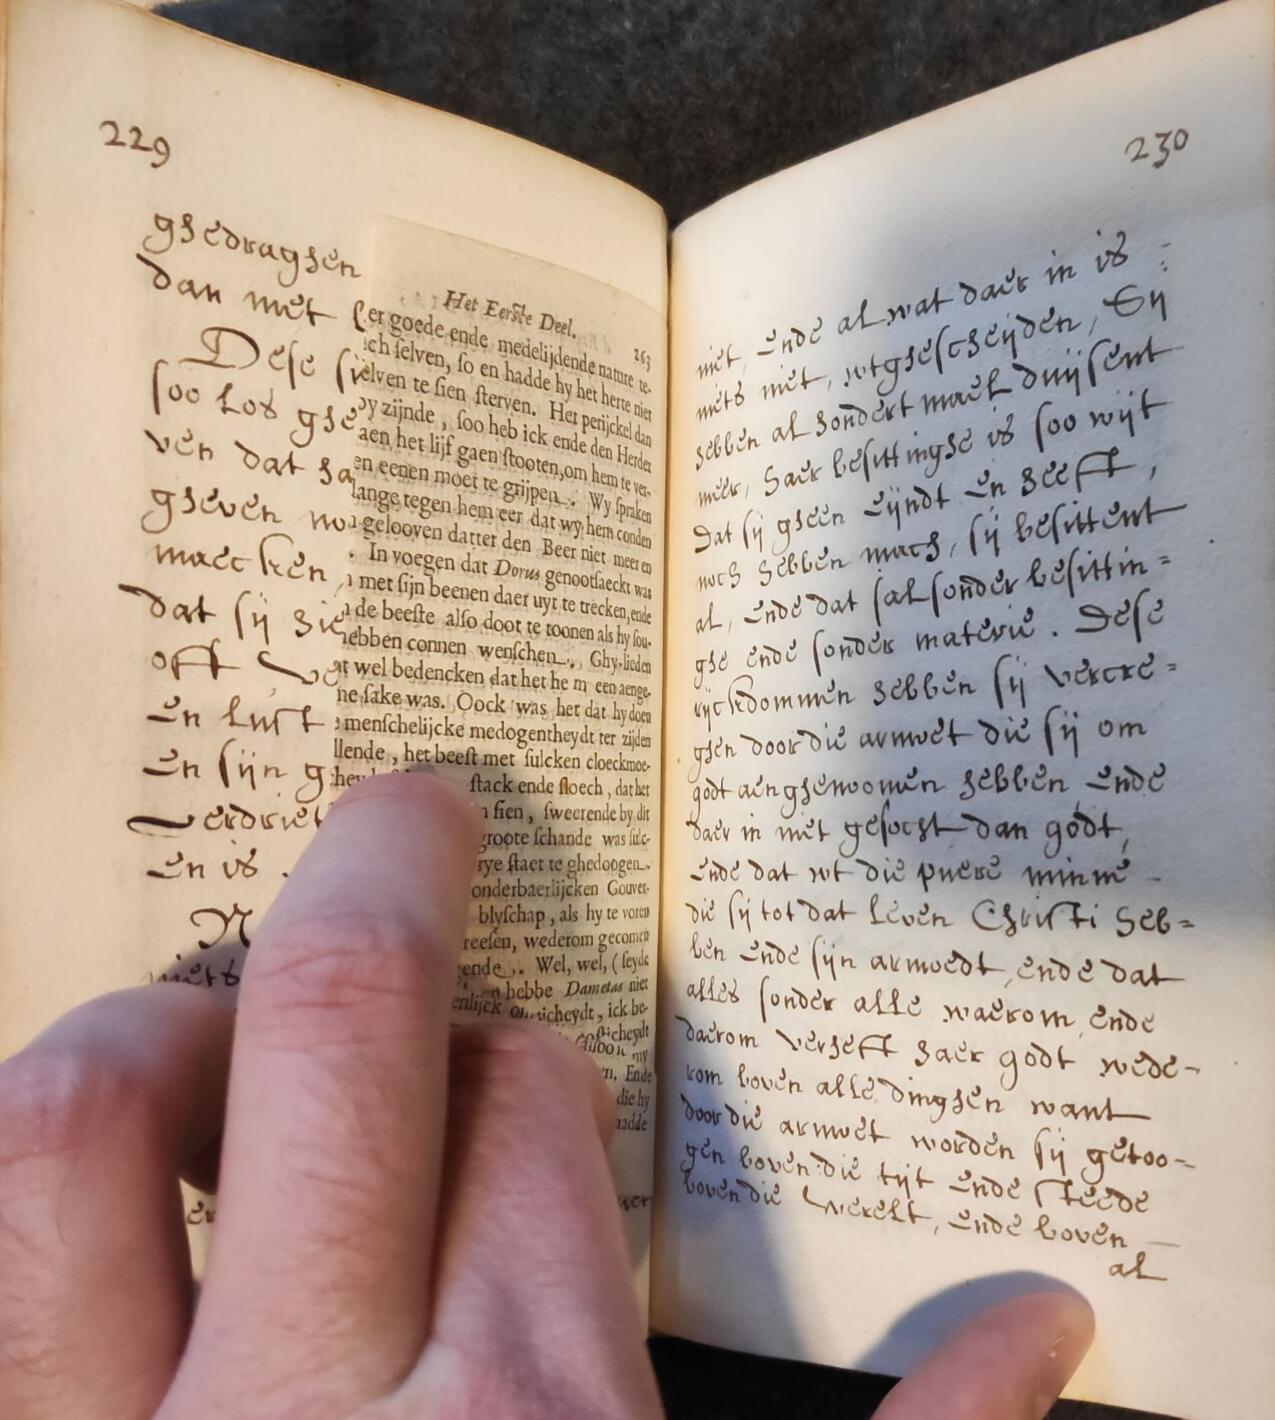 229
ghedraghen
dan met
Dese
soo los ghe
ven dat ha
gheven
maecken
dat sij
off
en lust
en sijn g
verdriet
en is .
niets
Het Eerste Deel.
263
er goede ende medelijdende nature te-
ich selven, so en hadde hy het herte niet
elven te sien sterven. Het perijckel dan
by zijnde, soo heb ick ende den Herder
aen het lijf gaen stooten, om hem te ver-
en eenen moet te grijpen. Wy spraken
lange tegen hem eer dat wy hem conden
gelooven datter den Beer niet meer en
. In voegen dat Dorus genootsaeckt was
met sijn beenen daer uyt te trecken, ende
de beeste also doot te toonen als hy sou-
hebben connen wenschen. Ghy-lieden
at wel bedencken dat het hem een aenge-
ne sake was. Oock was het dat hy doen
menschelijcke medogentheydt ter zijden
llende, het beest met sulcken cloeckmoe-
stack ende sloech, dat het
sien, sweerende by dit
groote schande was sulc-
rye staet te ghedoogen.
onderbaerlijcken Gouver-
blyschap, als hy te voren
reesen, wederom gecomen
ende. Wel, wel, (seyde
hebbe Dametas niet
ick be-
my
Ende
die hy
hadde
230
niet, ende al wat daer in is
niets niet, wtghescheijden, Sij
hebben al hondert mael duijsent
meer, haer besittinghe is soo wijt
Dat sij gheen eijndt en heeft,
noch hebben mach, sij besittent
al, ende dat sal sonder besittin=
ghe ende sonder materie. Dese
rijckdommen hebben sij vercre=
ghen door die armoet die sij om
godt aenghenoomen hebben ende
daer in niet gesocht dan godt,
ende dat wt die puere minne
die sij tot dat leven Christi heb=
ben ende sijn armoedt, ende dat
alles sonder alle waerom, ende
daerom verheft haer godt wede-
rom boven alle dinghen want
door die armoet worden sij getoo-
gen boven die tijt ende steede
boven die werelt, ende boven
al